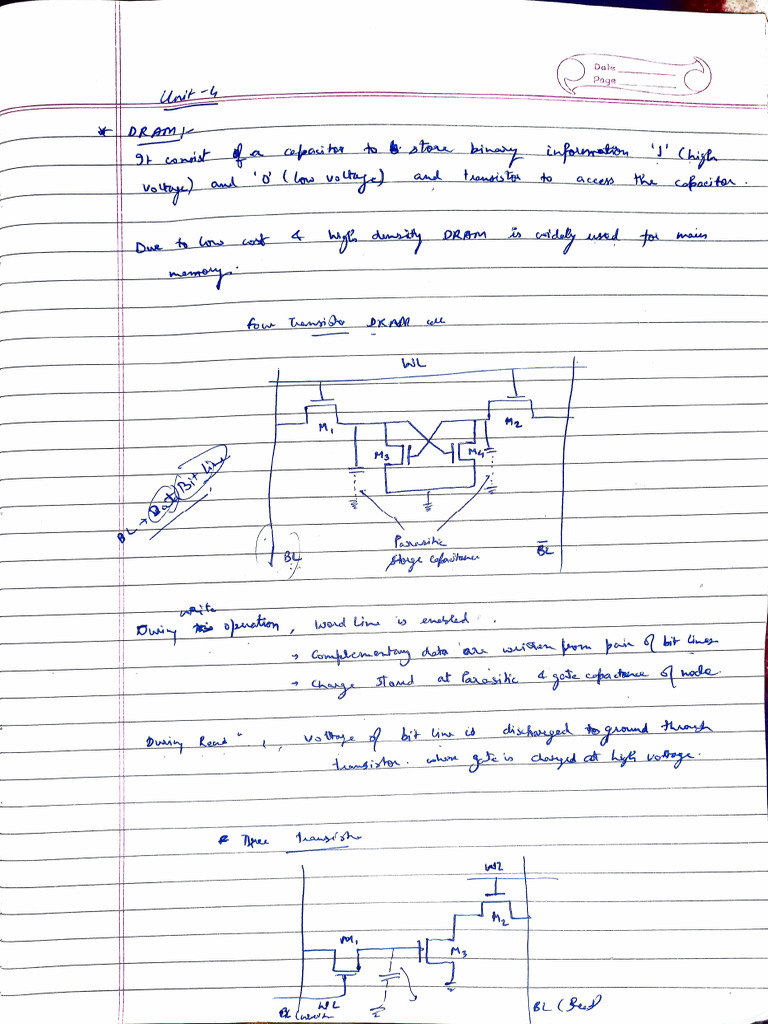 Date
Page
Unit-4
* DRAM:-
It consist of a capacitor to store binary information '1' (high
voltage) and '0' (low voltage) and transistor to access the capacitor.
Due to low cost & high density DRAM is widely used for main
memory.
four Transistor DRAM cell
WL
M1
M2
M3
M4
BL → Data/Bit line
BL
Parasitic
storge capacitance
B̅L̅
During write operation, word line is enabled.
→ Complementary data are written from pair of bit lines
→ charge stored at Parasitic & gate capactance of node
During Read " , voltage of bit line is discharged to ground through
transistor. whose gate is charged at high voltage.
* Three Transistor
WL
M2
M1
M3
WL
BL (write
BL (Read)